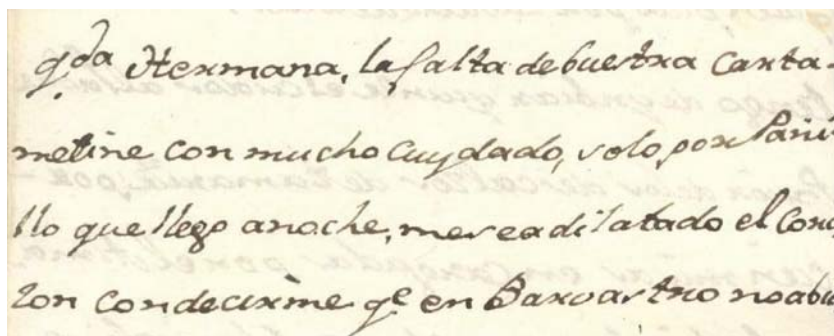 qda Hermana, la falta debuestra Carta
metiene con mucho Cuydado, solo, por Pani
llo que llego anoche, mesea dilatado el Cora
zon condecirme qe en Barvastro noabi